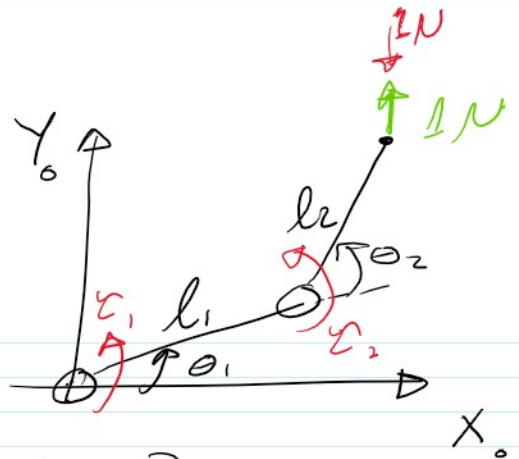 1N
1N
Y₀
l₂
θ₂
τ₁
l₁
τ₂
θ₁
X₀